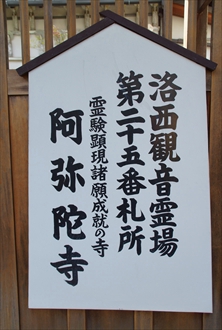 洛西観音霊場
第二十五番札所
霊験顕現諸願成就の寺
阿弥陀寺